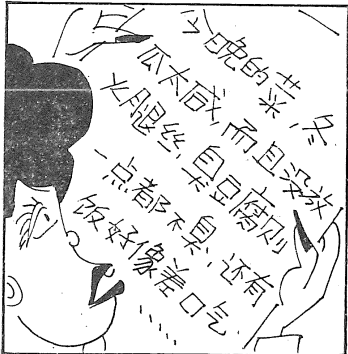 今晚的菜,冬
瓜太咸,而且没放
火腿丝,臭豆腐则
一点都不臭,还有
饭好像差口气.
......